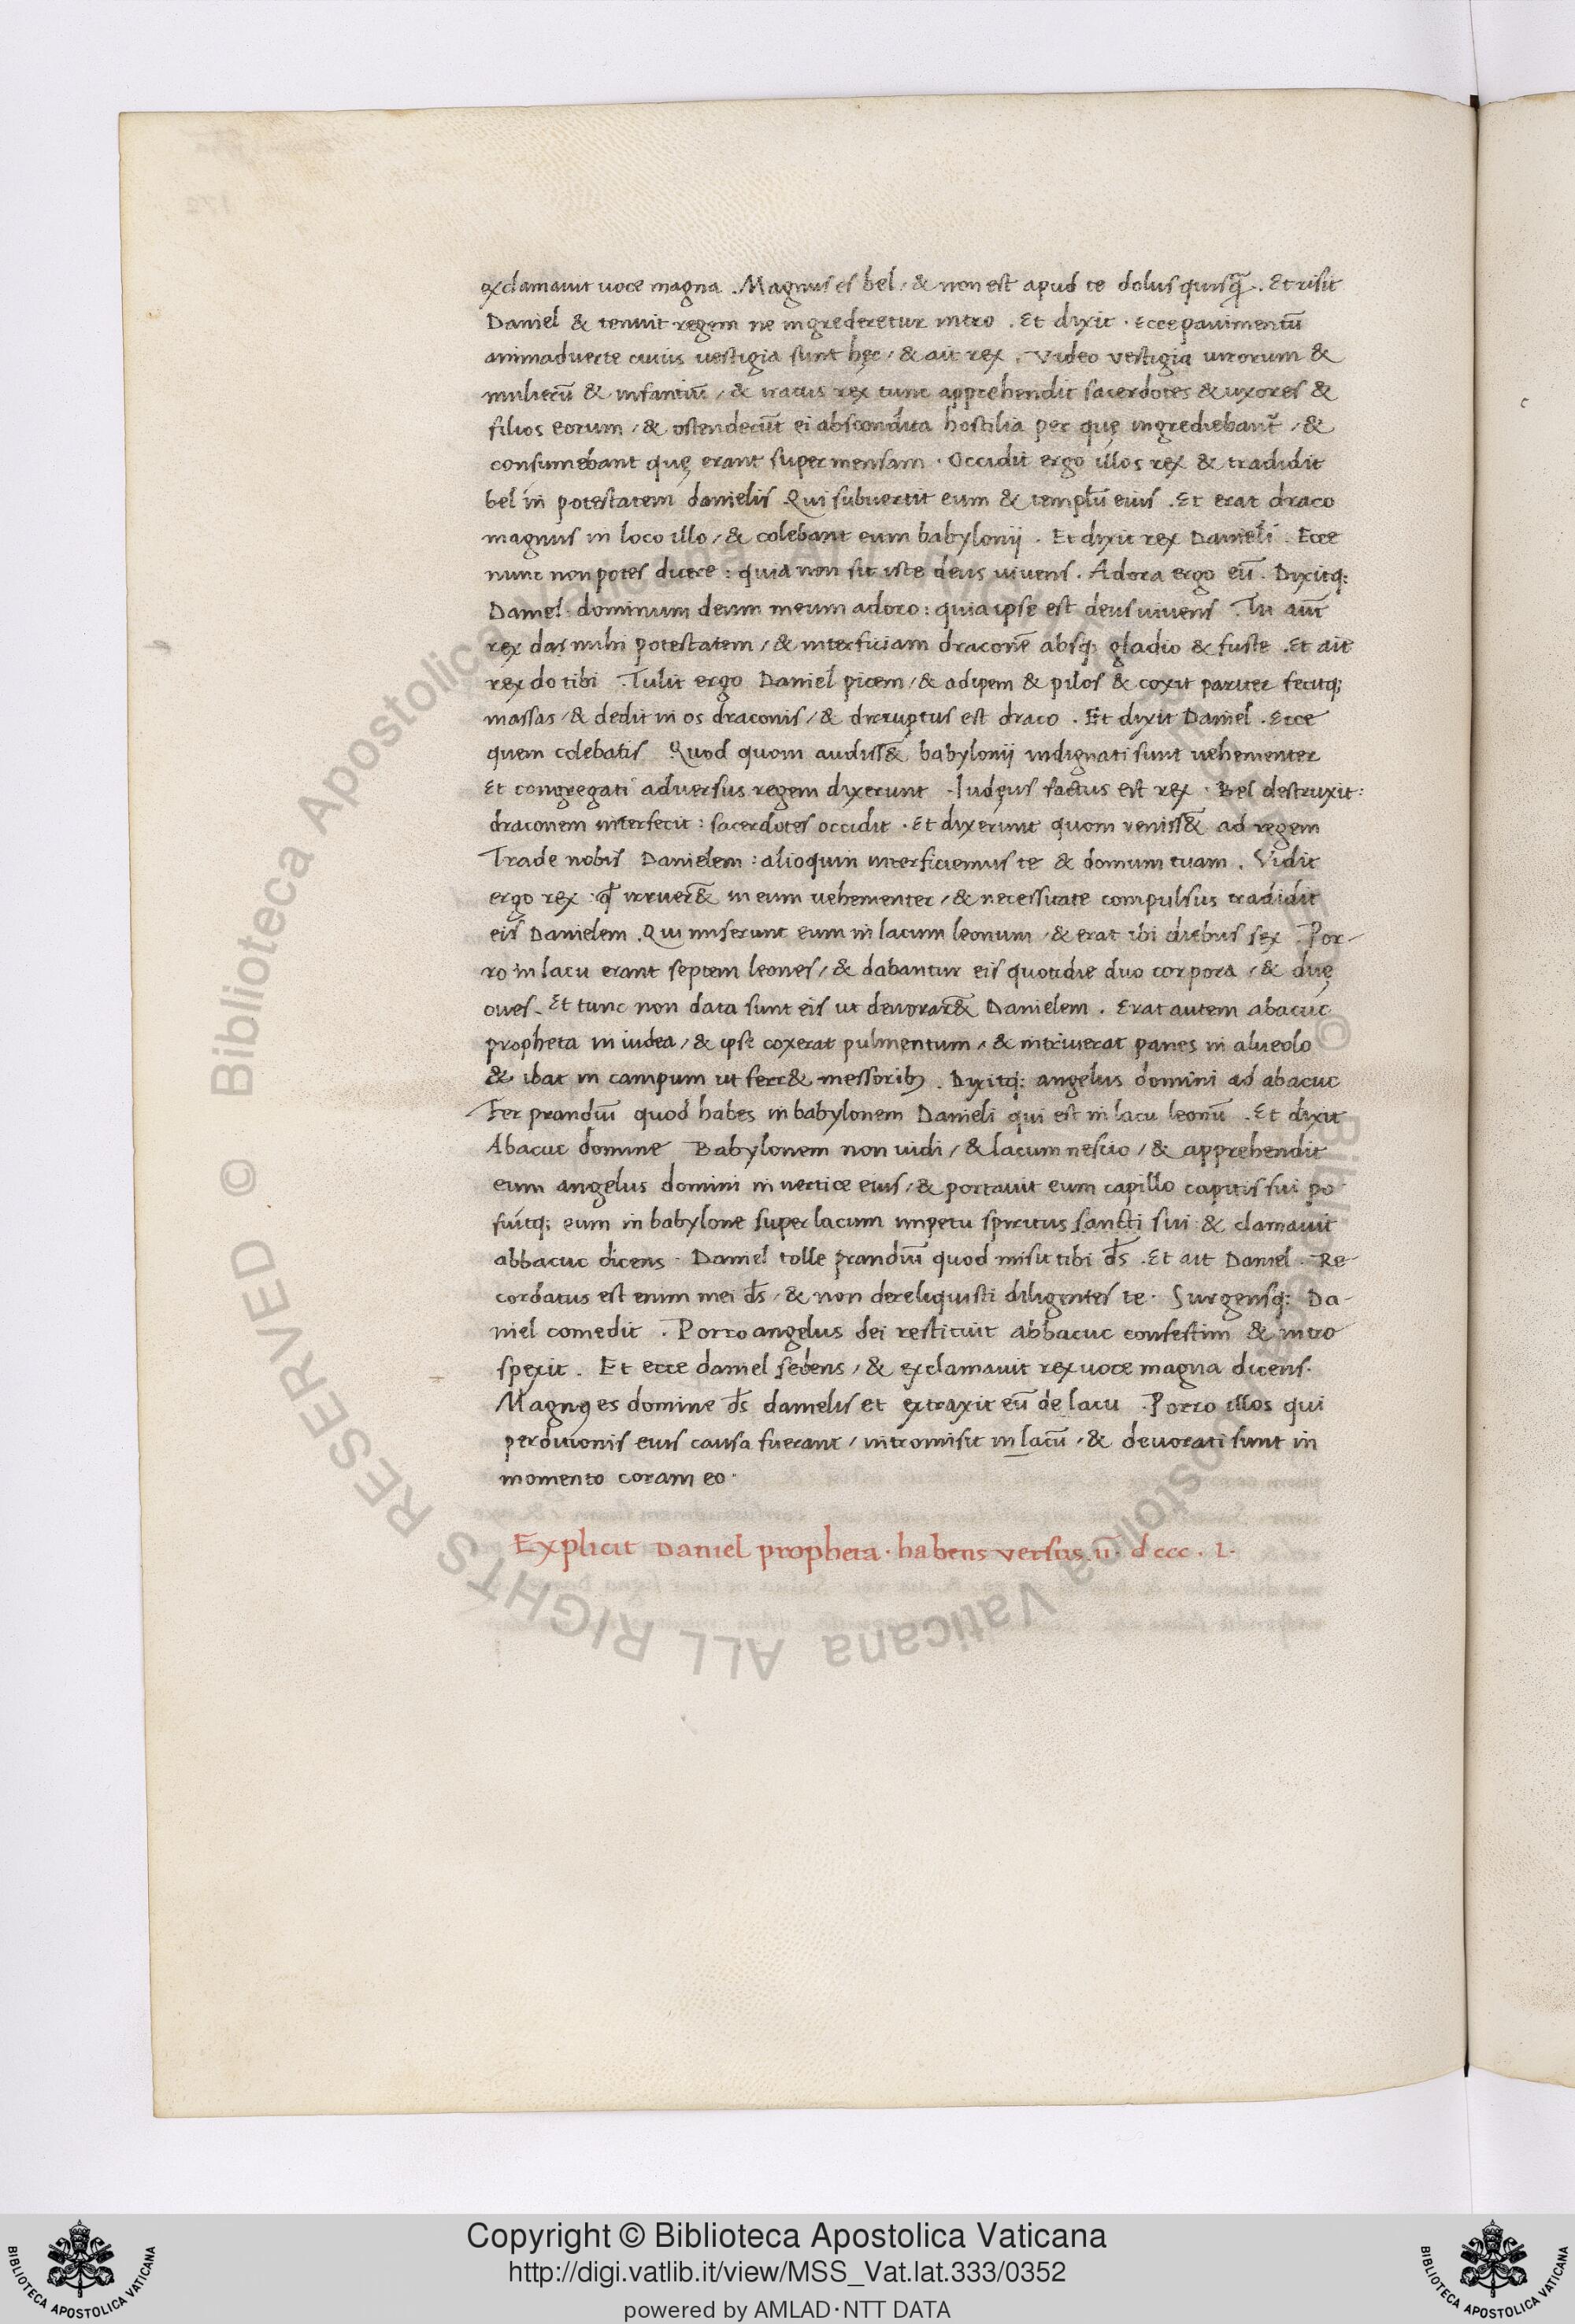 exclamauit uoce magna . Magnus es bel / & non est apud te dolus quisq̄ . Et risit
Daniel & tenuit regem ne ingrederetur intro . Et dixit . Ecce pauimentū
animaduerte cuius vestigia sunt hęc / & ait rex . Video vestigia uirorum &
mulierū & infantiū / & iratus rex tunc apprehendit sacerdotes & uxores &
filios eorum / & ostenderūt ei abscondita hostilia per quę ingrediebant̄ / &
consumebant quę erant super mensam . Occidit ergo illos rex & tradidit
bel in potestatem danielis Qui subuertit eum & templū eius . Et erat draco
magnus in loco illo / & colebant eum babylonij . Et dixit rex Danieli . Ecce
nunc non potes dicere : quia non sit iste deus uiuens . Adora ergo eū . Dixitq;
Daniel . dominum deum meum adoro : quia ipse est deus uiuens . Tu aūt
rex da mihi potestatem / & interficiam draconē absq; gladio & fuste . Et ait
rex do tibi . Tulit ergo Daniel picem / & adipem & pilos & coxit pariter fecitq;
massas / & dedit in os draconis / & diruptus est draco . Et dixit Daniel . Ecce
quem colebatis Quod quom audiss& babylonij indignati sunt uehementer
Et congregati aduersus regem dixerunt . Iudęus factus est rex . Bel destruxit :
draconem interfecit : sacerdotes occidit . Et dixerunt quom veniss& ad regem
Trade nobis Danielem : alioquin interficiemus te & domum tuam . Vidit
ergo rex q̄ irruer& in eum uehementer / & necessitate compulsus tradidit
eis Danielem . Qui miserunt eum in lacum leonum / & erat ibi diebus sex . Por-
ro in lacu erant septem leones / & dabantur eis quotidie duo corpora / & duę
oues . Et tunc non data sunt eis ut deuorar& Danielem . Erat autem abacuc
propheta in iudea / & ipse coxerat pulmentum / & intriuerat panes in alueolo
& ibat in campum ut ferr& messorib; . Dixitq; angelus domini ad abacuc
Fer prandiū quod habes in babylonem Danieli qui est in lacu leonū . Et dixit
Abacuc domine Babylonem non uidi / & lacum nescio / & apprehendit
eum angelus domini in uertice eius / & portauit eum capillo capitis sui po
suitq; eum in babylone super lacum impetu spiritus sancti sui & clamauit
abbacuc dicens . Daniel tolle prandiū quod misit tibi d̄s . Et ait Daniel . Re-
cordatus est enim mei d̄s / & non dereliquisti diligentes te . Surgensq; Da-
niel comedit . Porro angelus dei restituit abbacuc confestim & intro
spexit . Et ecce daniel sedens / & exclamauit rex uoce magna dicens .
Magnꝰ es domine d̄s danielis et extraxit eū de lacu . Porro illos qui
perditionis eius causa fuerant / intromisit in lacū / & deuorati sunt in
momento coram eo .
Explicit Daniel propheta . habens versus . ii . dccc . L .
Copyright © Biblioteca Apostolica Vaticana
http://digi.vatlib.it/view/MSS_Vat.lat.333/0352
powered by AMLAD·NTT DATA
BIBLIOTECA APOSTOLICA VATICANA
BIBLIOTECA APOSTOLICA VATICANA
© Biblioteca Apostolica Vaticana ALL RIGHTS RESERVED